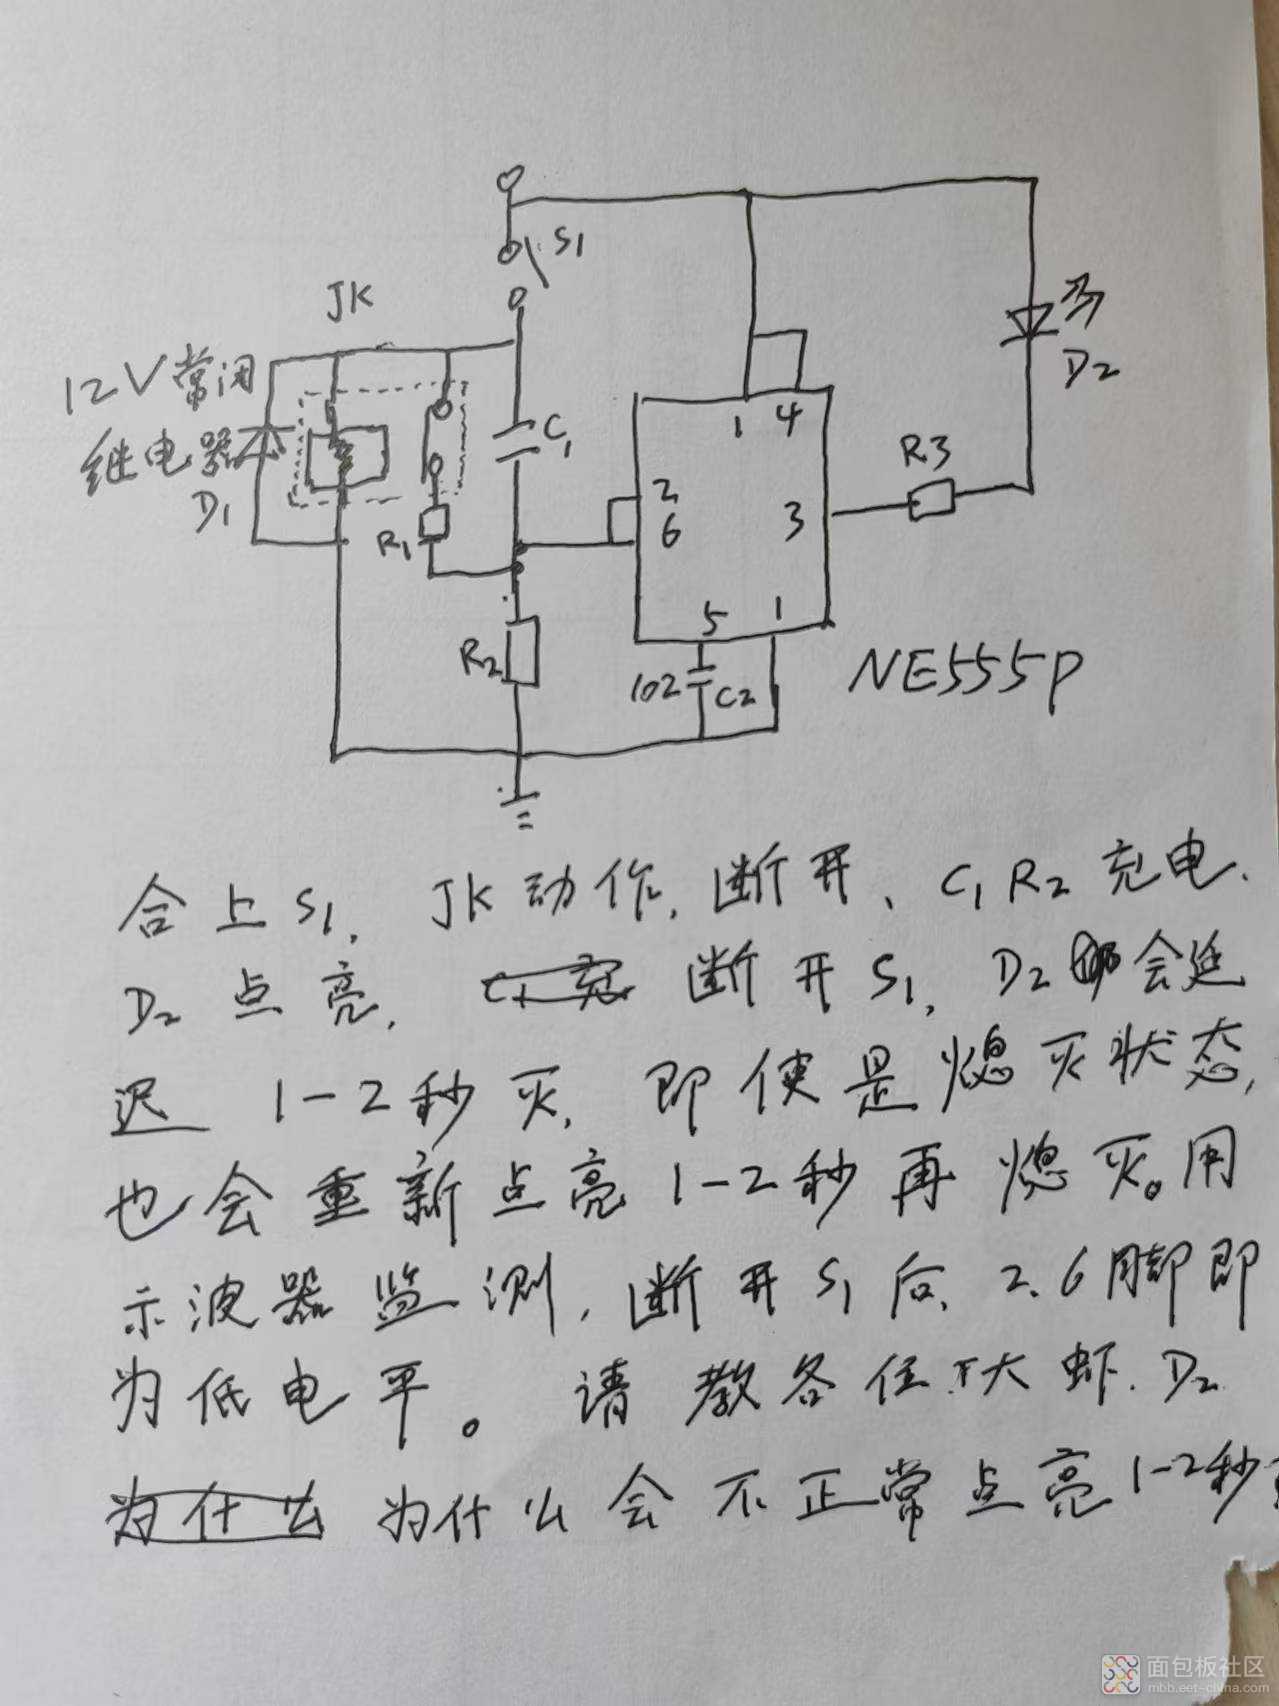 S1
JK
12V常闭
继电器
D1
C1
R1
R2
1 4
2
6
3
5 1
102 C2
R3
D2
NE555P
合上S1, JK动作, 断开, C1R2充电.
D2点亮, 断开S1, D2会延
迟1-2秒灭, 即使是熄灭状态,
也会重新点亮1-2秒再熄灭。用
示波器监测, 断开S1后, 2.6脚即
为低电平。请教各位大虾. D2
为什么 为什么会不正常点亮1-2秒
面包板社区
mbb.eet-china.com